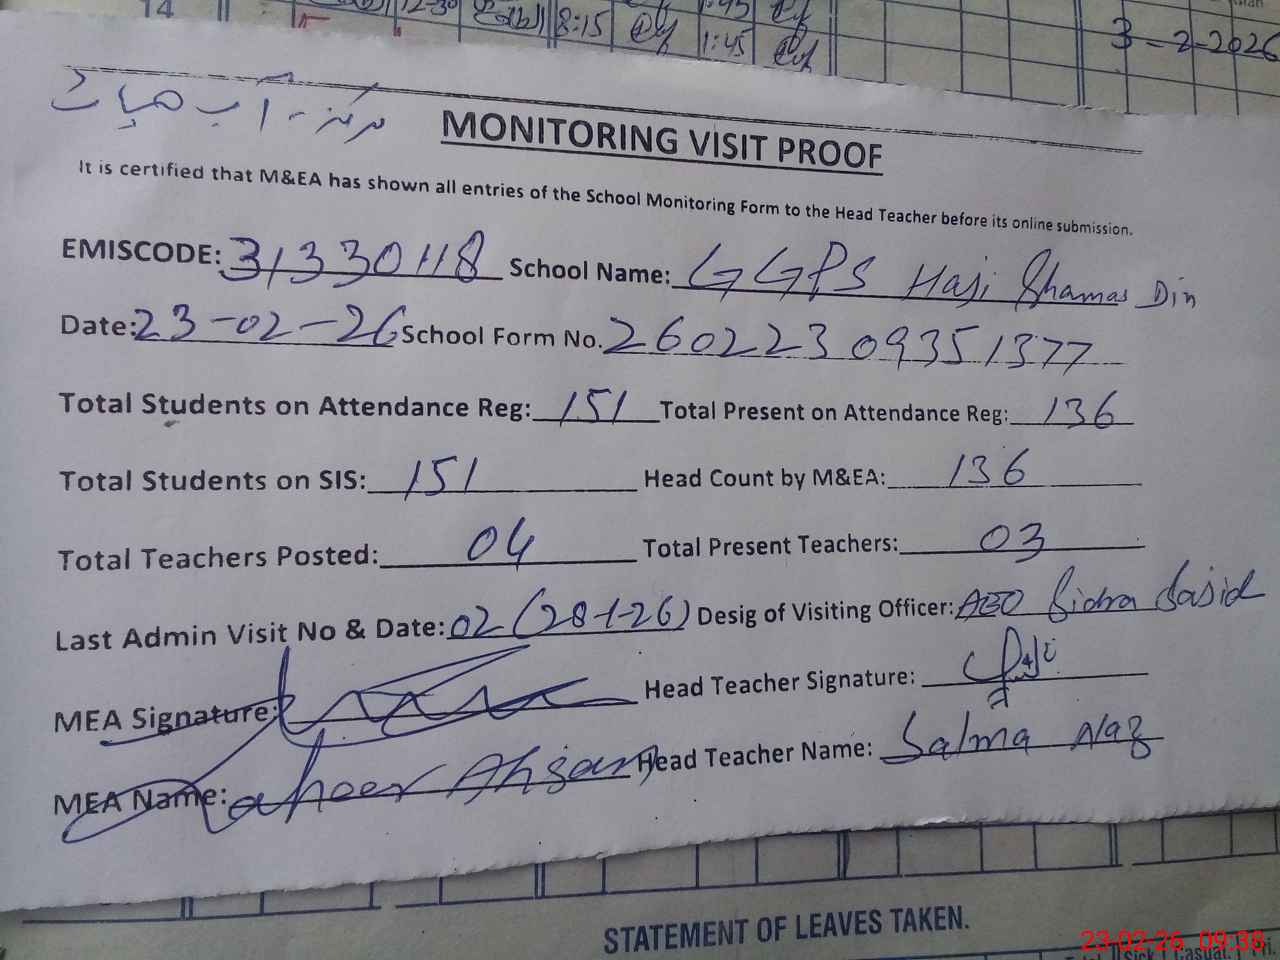 14 12-30 8:15 1:45
1:45
3-2-2026
مرکز - آب حیات
MONITORING VISIT PROOF
It is certified that M&EA has shown all entries of the School Monitoring Form to the Head Teacher before its online submission.
EMISCODE: 31330118 School Name: GGPS Haji Shamas Din
Date: 23-02-26 School Form No. 260223093513 77
Total Students on Attendance Reg: 151 Total Present on Attendance Reg: 136
Total Students on SIS: 151 Head Count by M&EA: 136
Total Teachers Posted: 04 Total Present Teachers: 03
Last Admin Visit No & Date: 02 (28-1-26) Desig of Visiting Officer: AEO Sidra Sajid
MEA Signature: Head Teacher Signature:
MEA Name: Ahsan Head Teacher Name: Salma Naz
STATEMENT OF LEAVES TAKEN.
23-02-26 09:38
Sick Casual